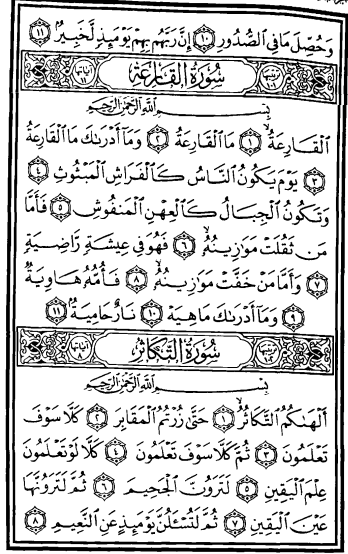 وَحُصِّلَ مَا فِي ٱلصُّدُورِ ١٠ إِنَّ رَبَّهُم بِهِمْ يَوْمَئِذٍ لَّخَبِيرٌۢ ١١
ترتيبها ١٠١ سُورَةُ القَارِعَةِ آياتها ١١
بِسْمِ ٱللَّهِ ٱلرَّحْمَٰنِ ٱلرَّحِيمِ
ٱلْقَارِعَةُ ١ مَا ٱلْقَارِعَةُ ٢ وَمَآ أَدْرَىٰكَ مَا ٱلْقَارِعَةُ
٣ يَوْمَ يَكُونُ ٱلنَّاسُ كَٱلْفَرَاشِ ٱلْمَبْثُوثِ ٤
وَتَكُونُ ٱلْجِبَالُ كَٱلْعِهْنِ ٱلْمَنفُوشِ ٥ فَأَمَّا
مَن ثَقُلَتْ مَوَٰزِينُهُۥ ٦ فَهُوَ فِي عِيشَةٍ رَّاضِيَةٍ
٧ وَأَمَّا مَنْ خَفَّتْ مَوَٰزِينُهُۥ ٨ فَأُمُّهُۥ هَاوِيَةٌ
٩ وَمَآ أَدْرَىٰكَ مَا هِيَهْ ١٠ نَارٌ حَامِيَةٌۢ ١١
ترتيبها ١٠٢ سُورَةُ التَّكَاثُرِ آياتها ٨
بِسْمِ ٱللَّهِ ٱلرَّحْمَٰنِ ٱلرَّحِيمِ
أَلْهَىٰكُمُ ٱلتَّكَاثُرُ ١ حَتَّىٰ زُرْتُمُ ٱلْمَقَابِرَ ٢ كَلَّا سَوْفَ
تَعْلَمُونَ ٣ ثُمَّ كَلَّا سَوْفَ تَعْلَمُونَ ٤ كَلَّا لَوْ تَعْلَمُونَ
عِلْمَ ٱلْيَقِينِ ٥ لَتَرَوُنَّ ٱلْجَحِيمَ ٦ ثُمَّ لَتَرَوُنَّهَا
عَيْنَ ٱلْيَقِينِ ٧ ثُمَّ لَتُسْـَٔلُنَّ يَوْمَئِذٍ عَنِ ٱلنَّعِيمِ ٨